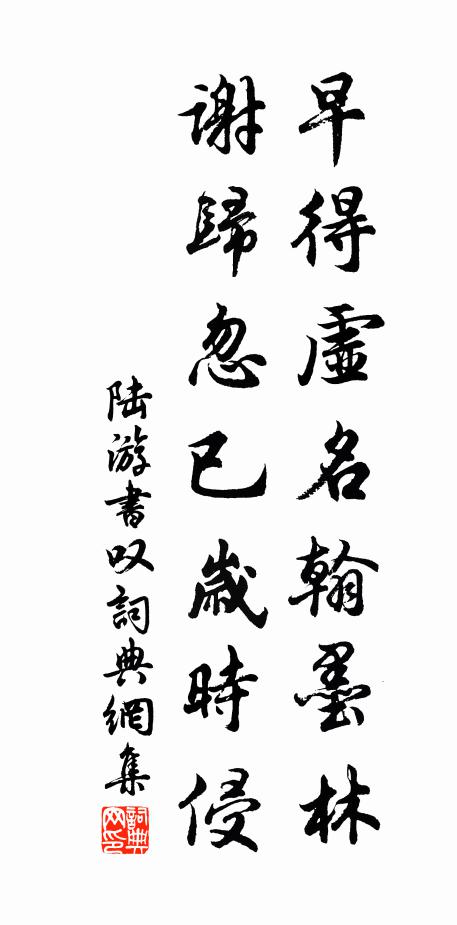 早得虛名翰墨林
謝歸忽已歲時侵
陸游書叹詞典網集
詞典網印